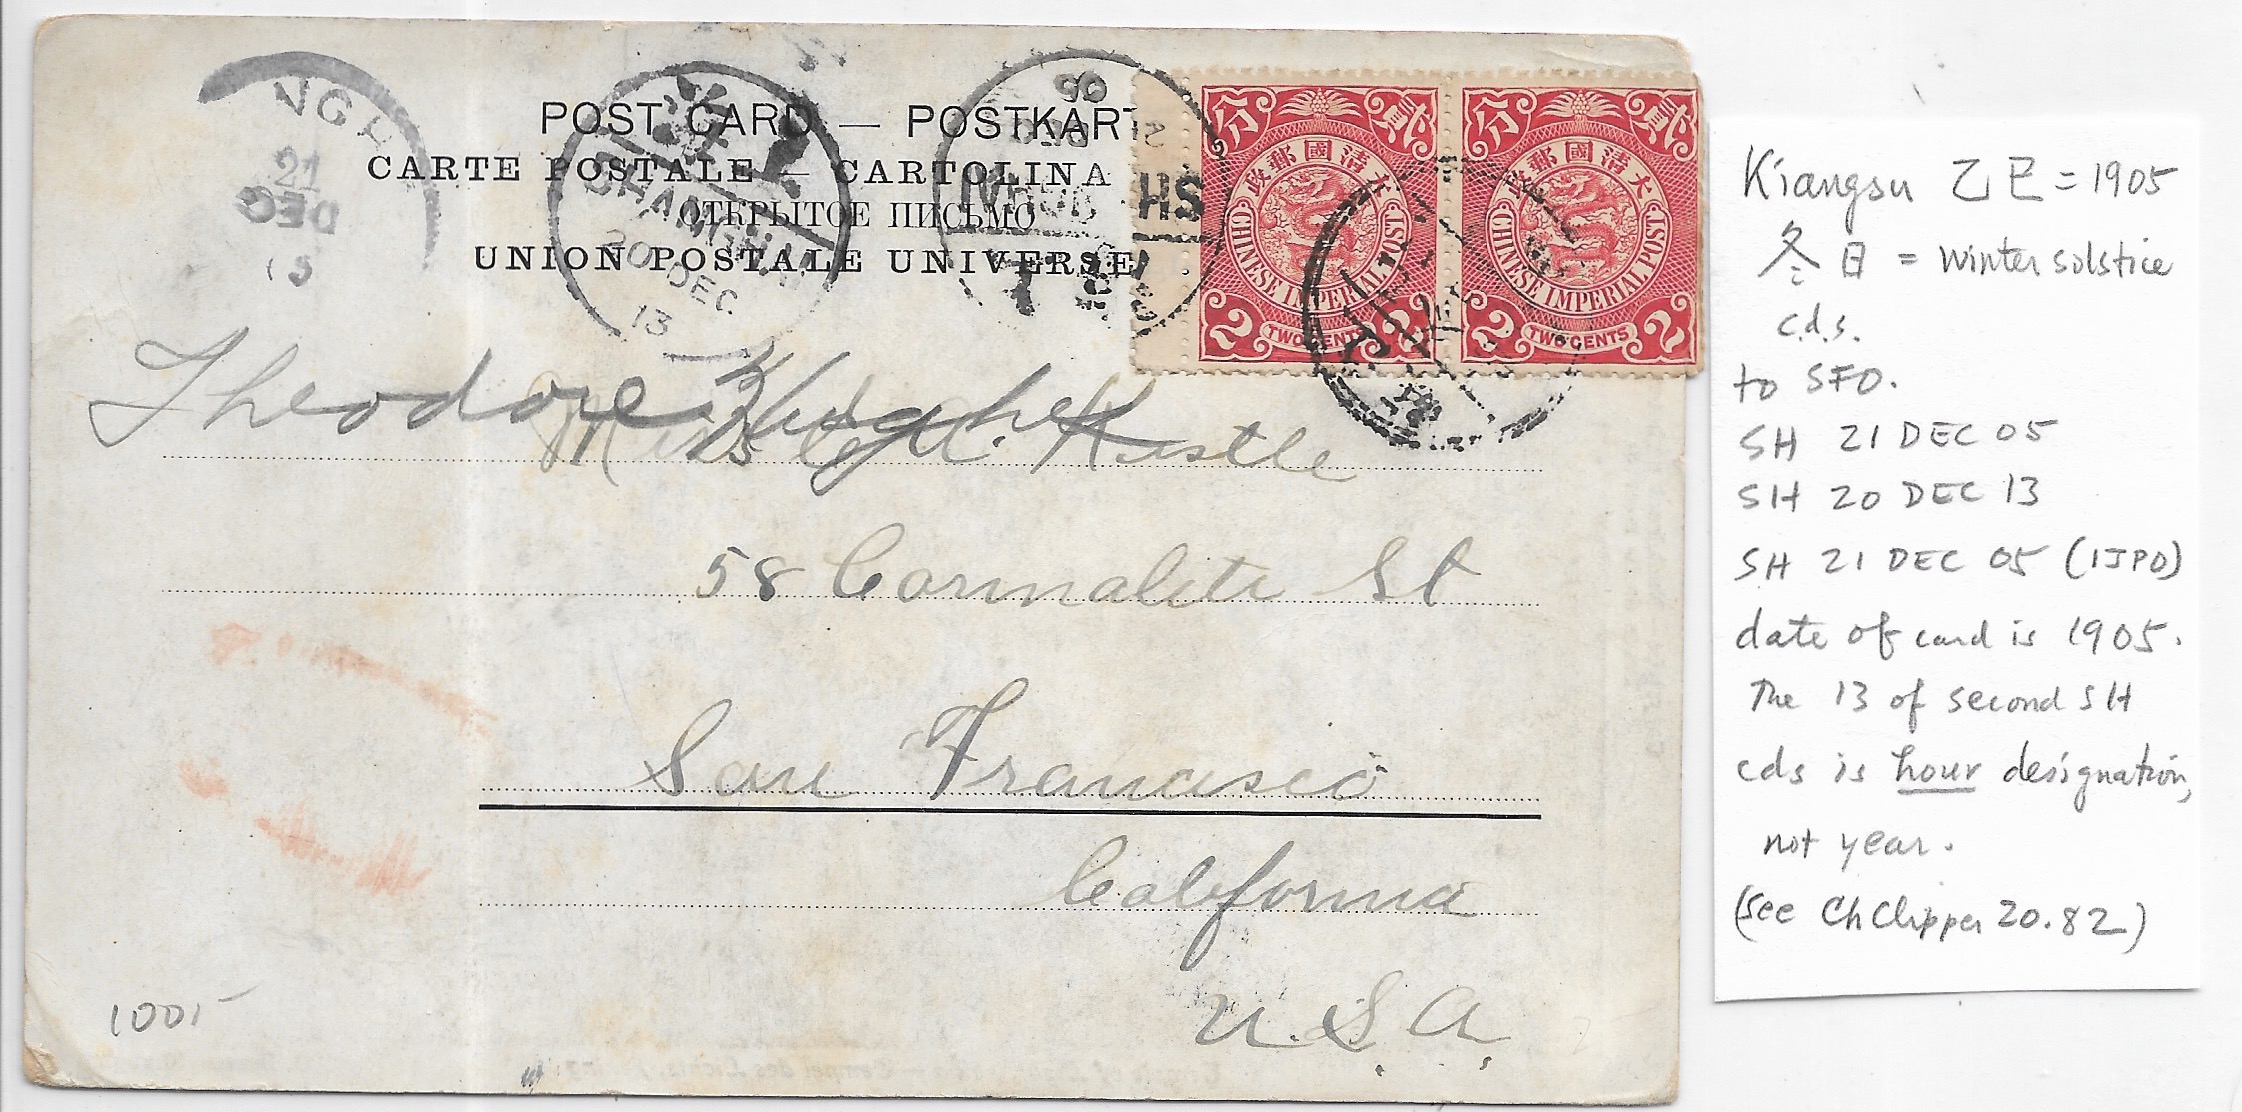 POST CARD — POSTKART
CARTE POSTALE — CARTOLINA
ОТКРЫТОЕ ПИСЬМО
UNION POSTALE UNIVERSE
NGH
21
DEC
05
SHANGHAI
20 DEC.
13
SH
大清國郵政
CHINESE IMPERIAL POST
分 貳
2 TWO CENTS 2
大清國郵政
CHINESE IMPERIAL POST
分 貳
2 TWO CENTS 2
Theodore Hughes
Miss A. Kastle
58 Carmalita St
San Francisco
California
U.S.A.
1005
Kiangsu 乙巳 = 1905
冬日 = winter solstice
c.d.s.
to SFO.
SH 21 DEC 05
SH 20 DEC 13
SH 21 DEC 05 (IJPO)
date of card is 1905.
The 13 of second SH
cds is hour designation,
not year.
(see Ch Clipper 20.82)